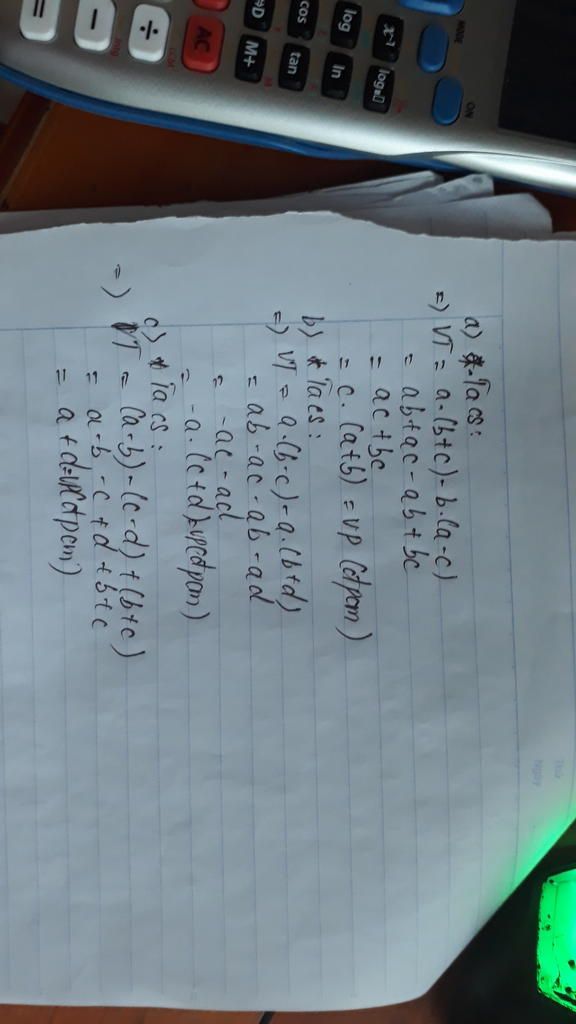 a) *. Ta có:
=) VT = a.(b+c) - b.(a-c)
= ab+ac - ab + bc
= ac + bc
= c. (a+b) = VP (đpcm)
b) * Ta có:
=) VT = a.(b-c) - a.(b+d)
= ab - ac - ab - ad
= -ac - ad
= -a.(c+d)=VP(đpcm)
c) * Ta có:
=) VT = (a-b) - (c-d) + (b+c)
= a - b - c + d + b + c
= a + d=VP(đpcm)
Thứ
Ngày
MODE
ON
x-1
log
cos
ln
tan
M+
AC
÷
−
=